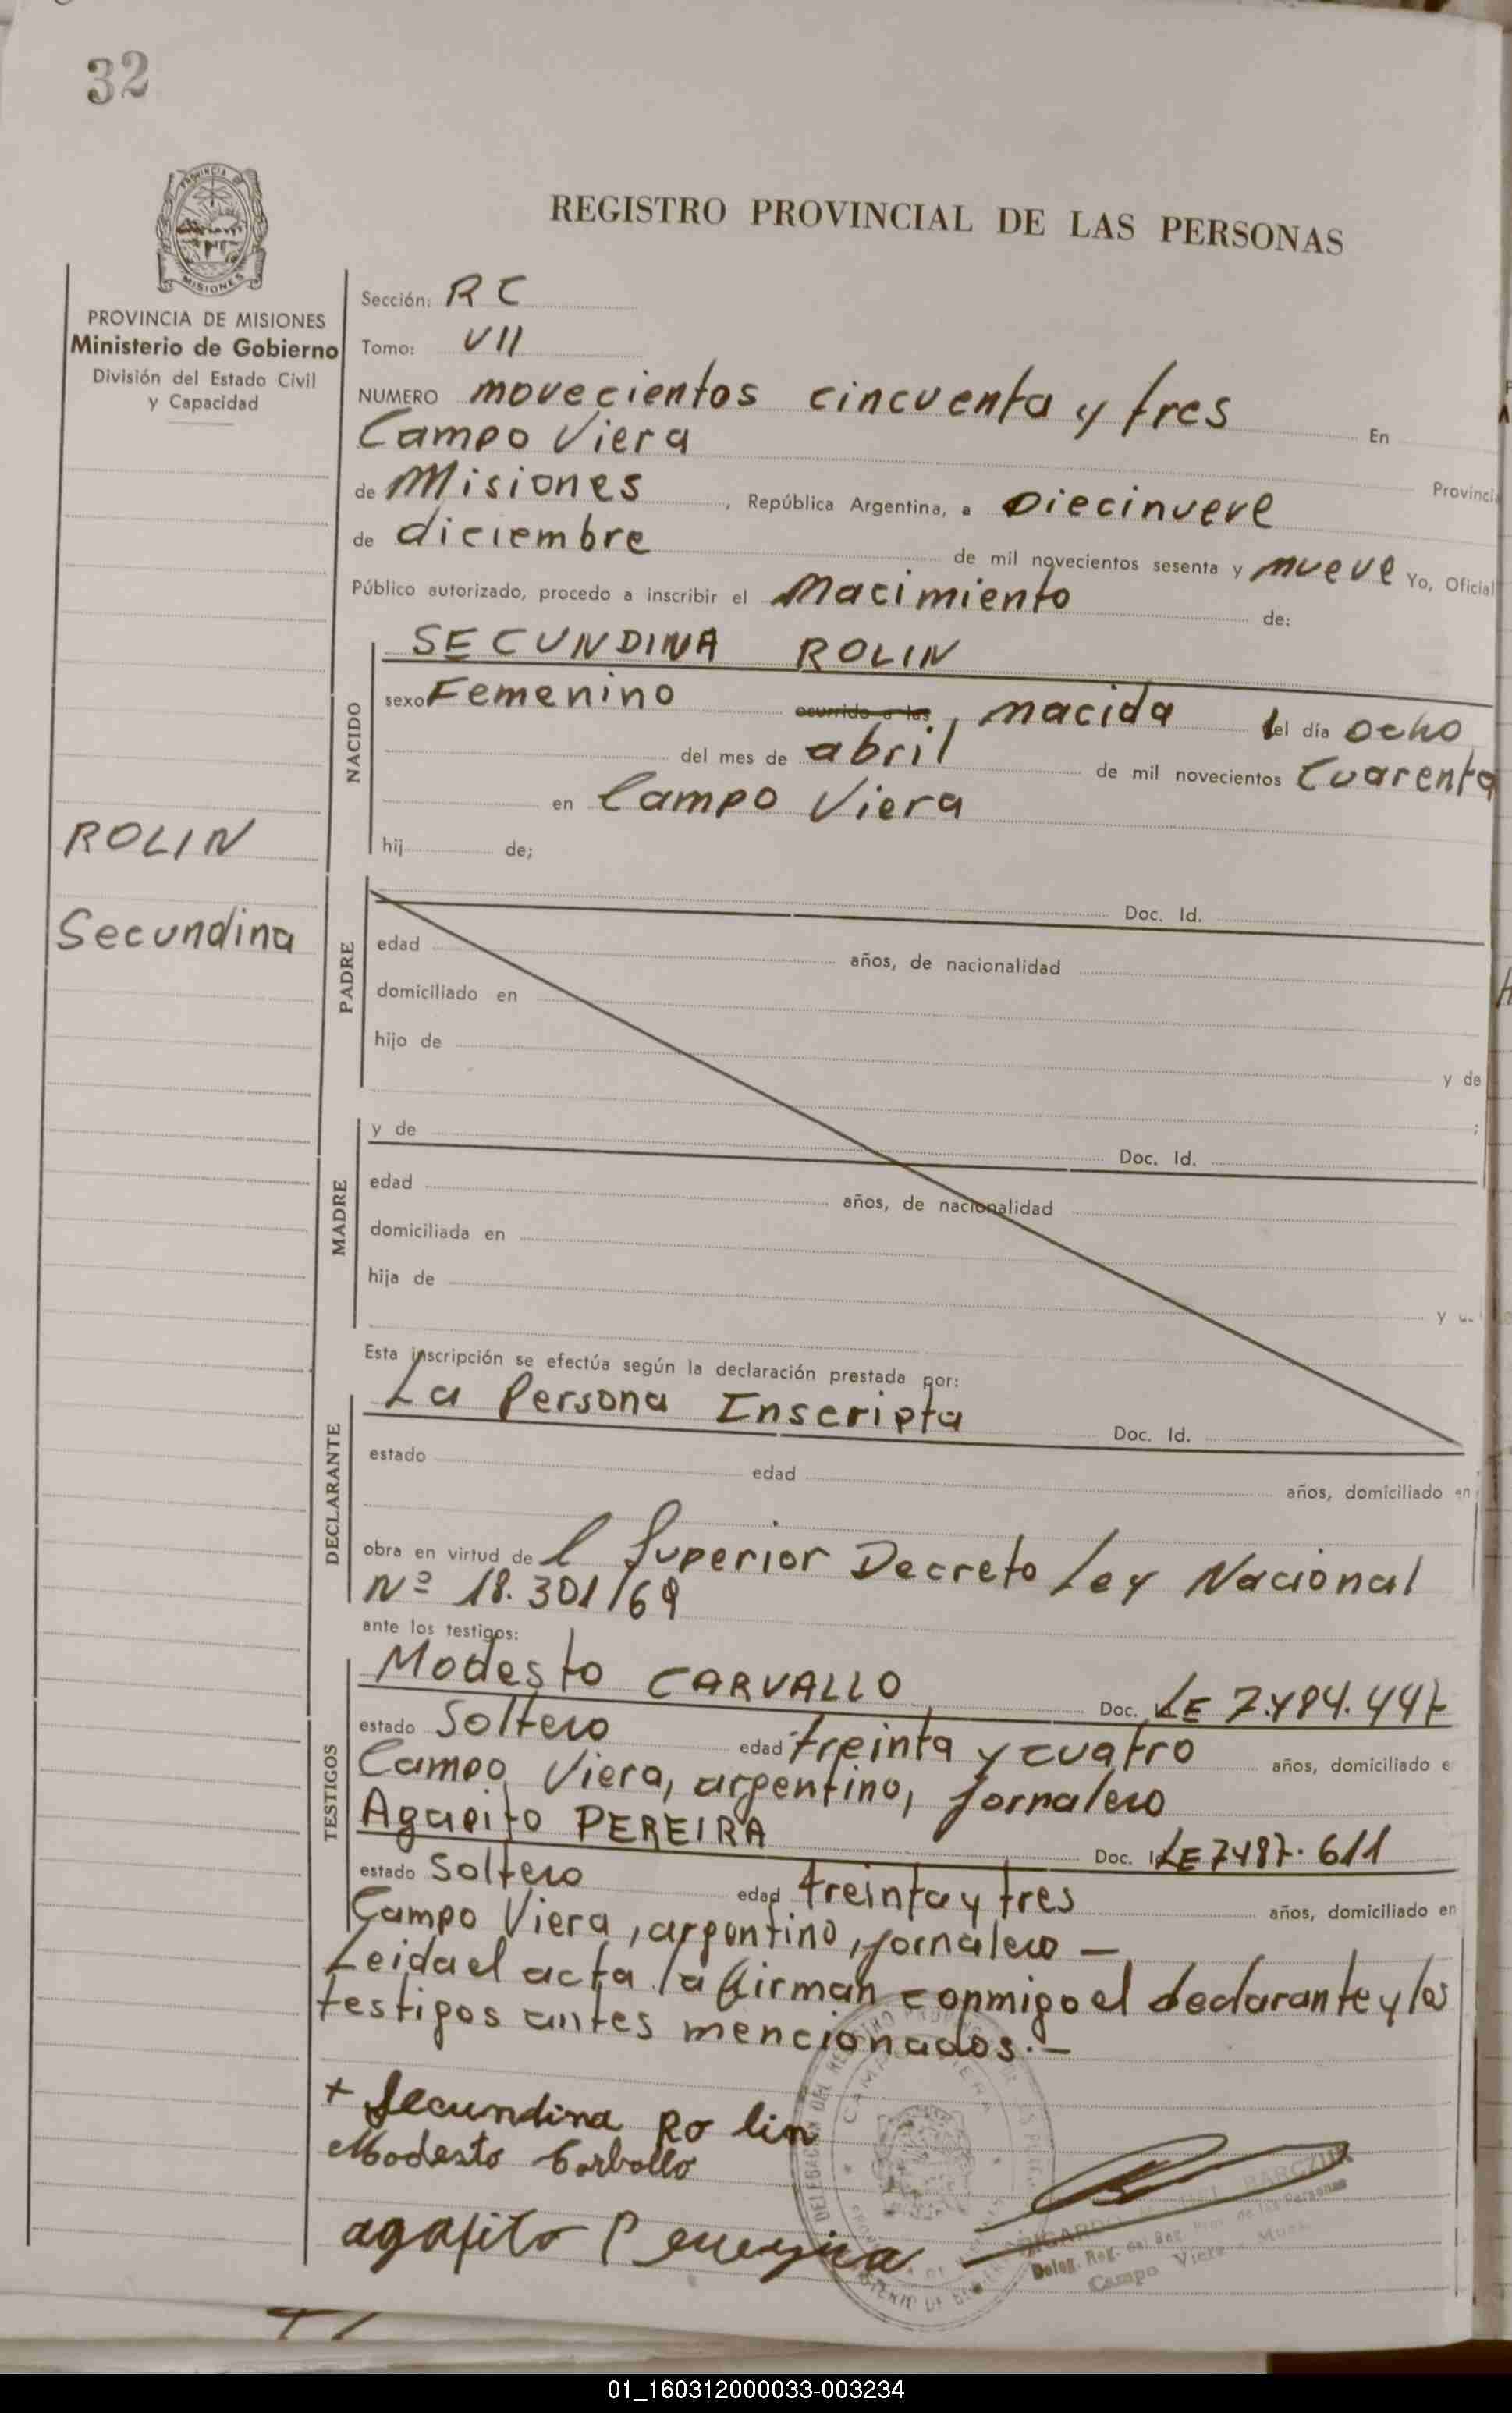 32
REGISTRO PROVINCIAL DE LAS PERSONAS
PROVINCIA
MISIONES
PROVINCIA DE MISIONES
Ministerio de Gobierno
División del Estado Civil
y Capacidad
ROLIN
Secundina
Sección: R C
Tomo: VII
NUMERO novecientos cincuenta y tres En
Campo Viera Provincia
de Misiones, República Argentina, a Diecinueve
de diciembre de mil novecientos sesenta y nueve Yo, Oficial
Público autorizado, procedo a inscribir el Nacimiento de:
NACIDO
SECUNDINA ROLIN
sexo Femenino ocurrido a las, nacida el día ocho
del mes de abril de mil novecientos Cuarenta
en Campo Viera
hij de;
PADRE
Doc. Id.
edad años, de nacionalidad
domiciliado en
hijo de
y de
;
MADRE
y de Doc. Id.
edad años, de nacionalidad
domiciliada en
hija de
y
Esta inscripción se efectúa según la declaración prestada por:
DECLARANTE
La Persona Inscripta Doc. Id.
estado edad años, domiciliado en
obra en virtud de l Superior Decreto Ley Nacional
Nº 18.301/69
ante los testigos:
TESTIGOS
Modesto CARVALLO Doc. LE 7.484.447
estado Soltero edad treinta y cuatro años, domiciliado e
Campo Viera, argentino, jornalero
Agapito PEREIRA Doc. I LE 7487.611
estado Soltero edad treinta y tres años, domiciliado en
Campo Viera, argentino, jornalero —
Leida el acta la firman conmigo el declarante y los
testigos antes mencionados.—
+ Secundina Ro lin
Modesto Carballo
agapito Pereyra
CAMPO VIERA
Deleg. Reg. del Reg. Prov. de las Personas
Campo Viera - Mnes.
01_160312000033-003234